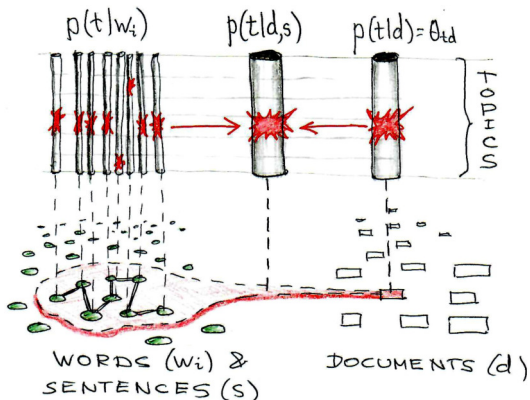 p(t|wi) p(t|d,s) p(t|d)=θtd
TOPICS
WORDS (wi) &
SENTENCES (s)
DOCUMENTS (d)